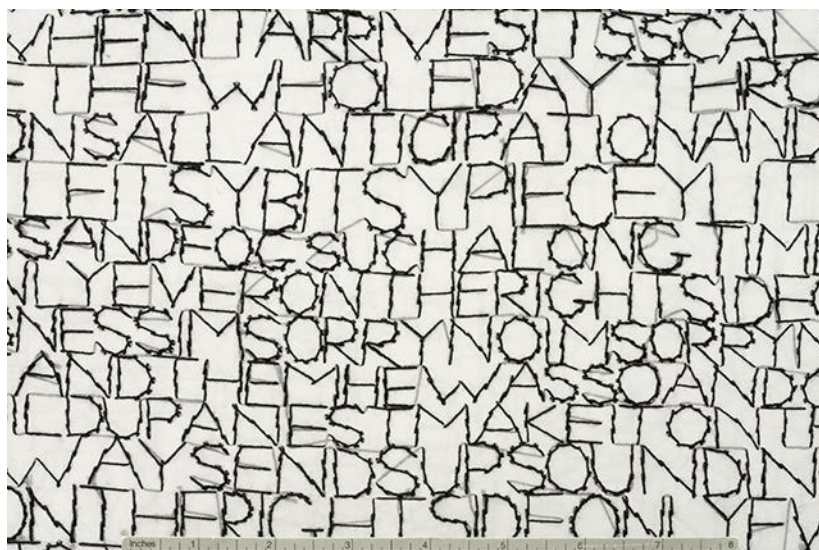 WHEN IT ARRIVES ITS SCAL
E THE WHOLE DAY THRO
ONS ALL ANTICIPATION AND
LE ITSY BITSY PIECEY LITT
S AND SUCH A LONG TIM
NLY EVER ON THE RIGHT SIDE O
NESS IM SORRY NO IM SORRY
AND THEM HE WAS SO AND
ILD UP A NEST I MAKE IT ON TH
WAYS ENDS UP SOUNDIN
ON THE RIGHT SIDE ONLY EV
Inches 1 2 3 4 5 6 7 8